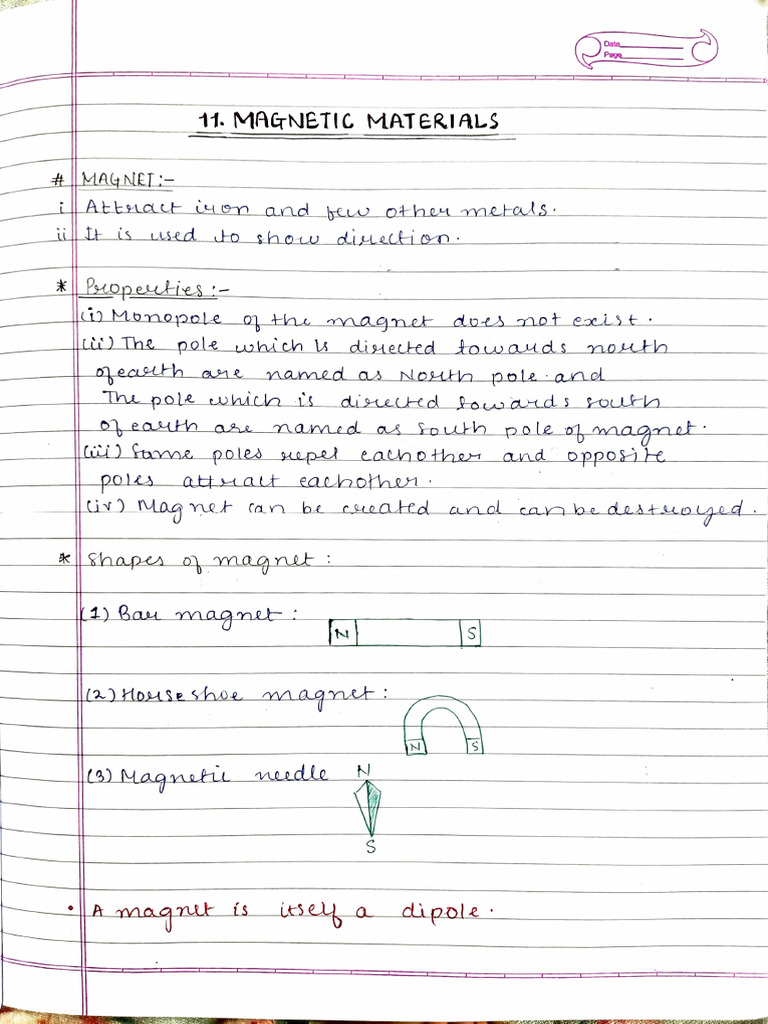 Date
Page
11. MAGNETIC MATERIALS
# MAGNET:-
i Attract iron and few other metals.
ii It is used to show direction.
* Properties:-
(i) Monopole of the magnet does not exist.
(ii) The pole which is directed towards north
of earth are named as North pole. and
The pole which is directed towards south
of earth are named as south pole of magnet.
(iii) Same poles repel eachother and opposite
poles attract eachother.
(iv) Magnet can be created and can be destroyed.
* Shapes of magnet:
(1) Bar magnet:
N S
(2) Horse shoe magnet:
N S
(3) Magnetic needle N
S
• A magnet is itself a dipole.